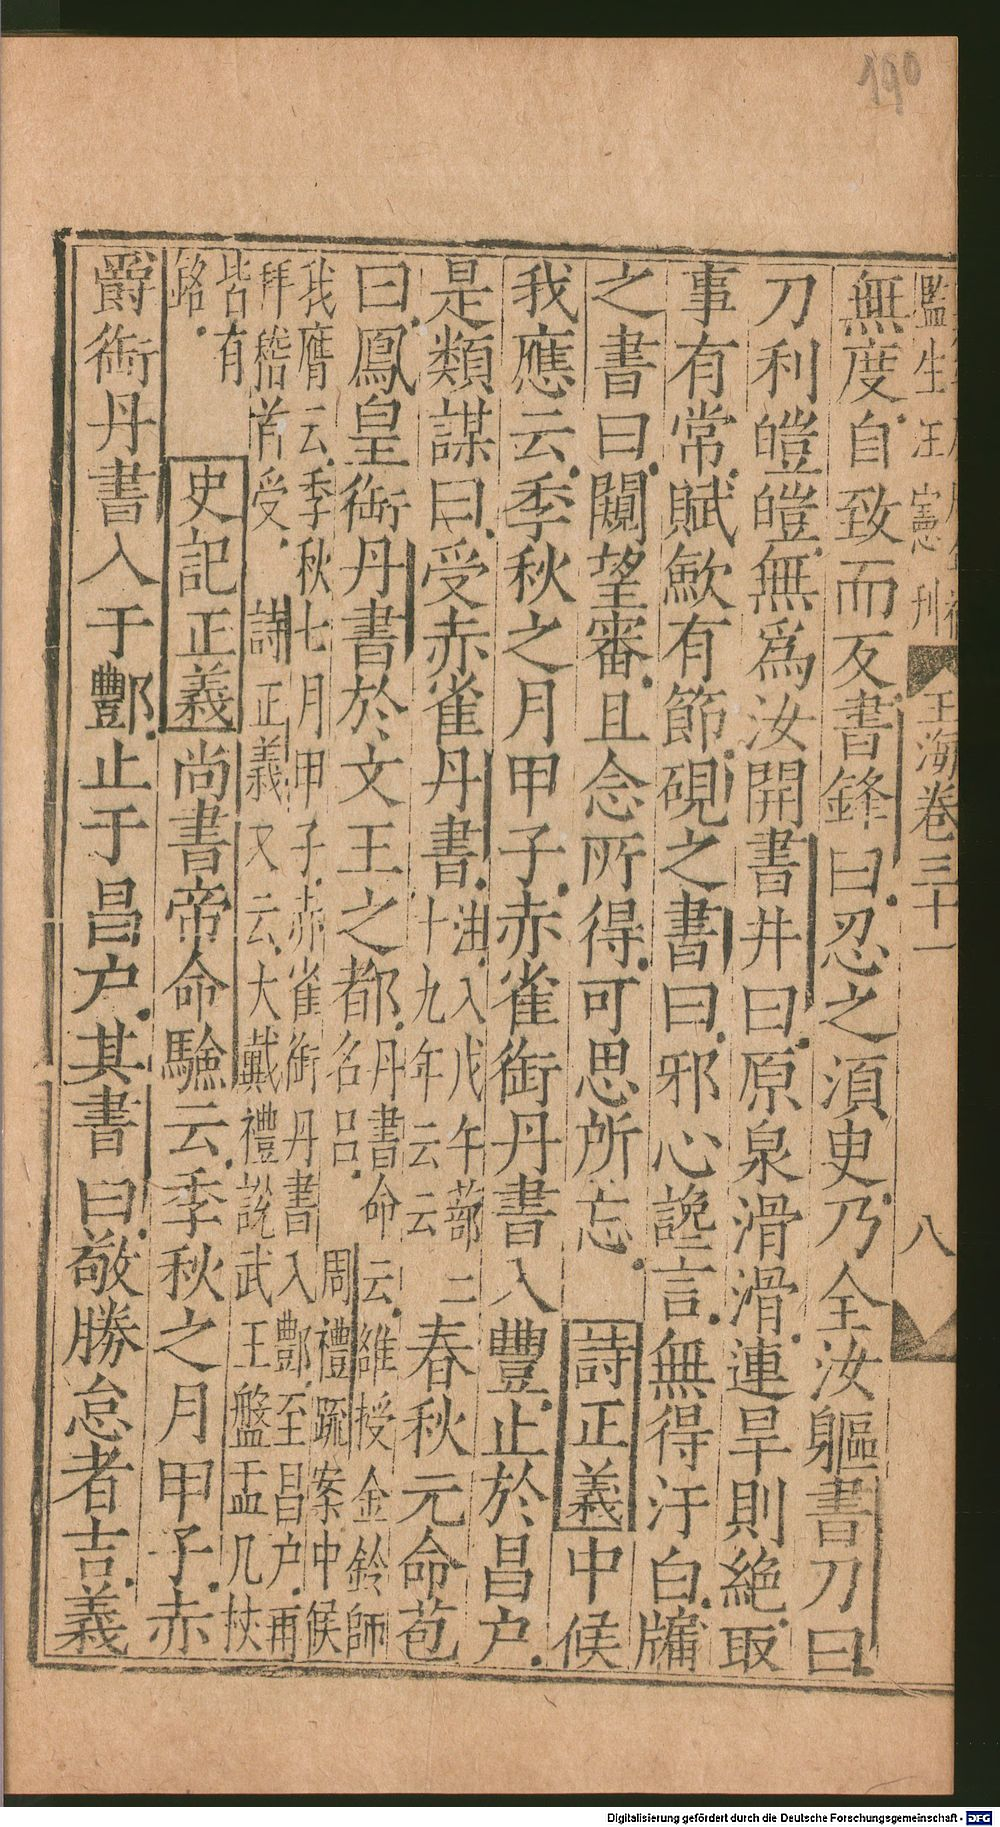 190
監生汪憲刊
玉海卷三十一
八
無度自致而反書鋒曰忍之須臾乃全汝軀書刀曰
刀利皚皚無爲汝開書井曰原泉滑滑連旱則絶取
事有常賦斂有節硯之書曰邪心讒言無得汙白牖
之書曰闚望審且念所得可思所忘詩正義中候
我應云季秋之月甲子赤雀銜丹書入豐止於昌户
是類謀曰受赤雀丹書注入戊午蔀二
十九年云云春秋元命苞
曰鳳皇銜丹書於文王之都丹書命云維授金鈴師
名呂周禮疏案中候
我膺云季秋七月甲子赤雀銜丹書入酆至昌户再
拜稽首受詩正義又云大戴禮說武王盤盂几杖
皆有
銘史記正義尚書帝命驗云季秋之月甲子赤
爵銜丹書入于酆止于昌户其書曰敬勝怠者吉義
Digitalisierung gefördert durch die Deutsche Forschungsgemeinschaft - DFG